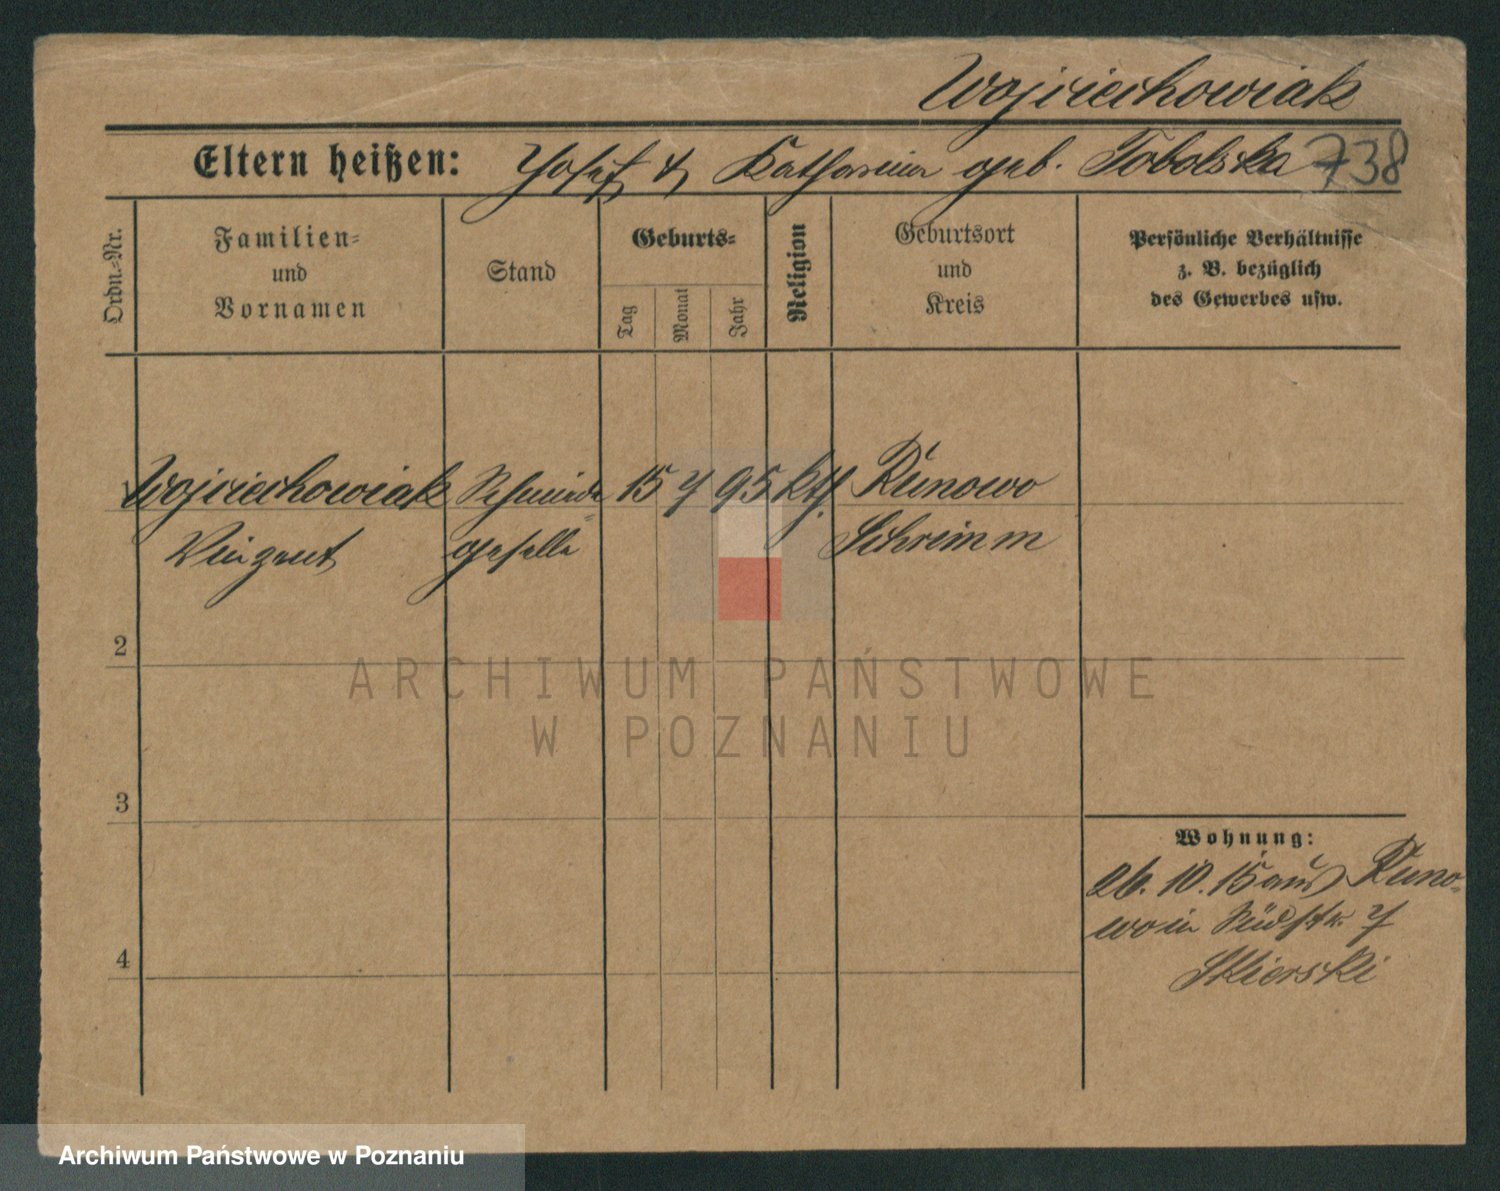 Wojciechowiak
Eltern heißen: Josef & Katharina geb. Tobolska 738
Ordn.-Nr.
Familien-
und
Vornamen
Stand
Geburts-
Tag
Monat
Jahr
Religion
Geburtsort
und
Kreis
Persönliche Verhältnisse
z. B. bezüglich
des Gewerbes usw.
1 Wojciechowiak Schmiede- 15 7 95 kth. Runowo
Vinzent geselle Schrimm
2
3
4
Wohnung:
26. 10. 15 aus Runo-
wo in Südstr. 7
Skierski
ARCHIWUM PAŃSTWOWE
W POZNANIU
Archiwum Państwowe w Poznaniu